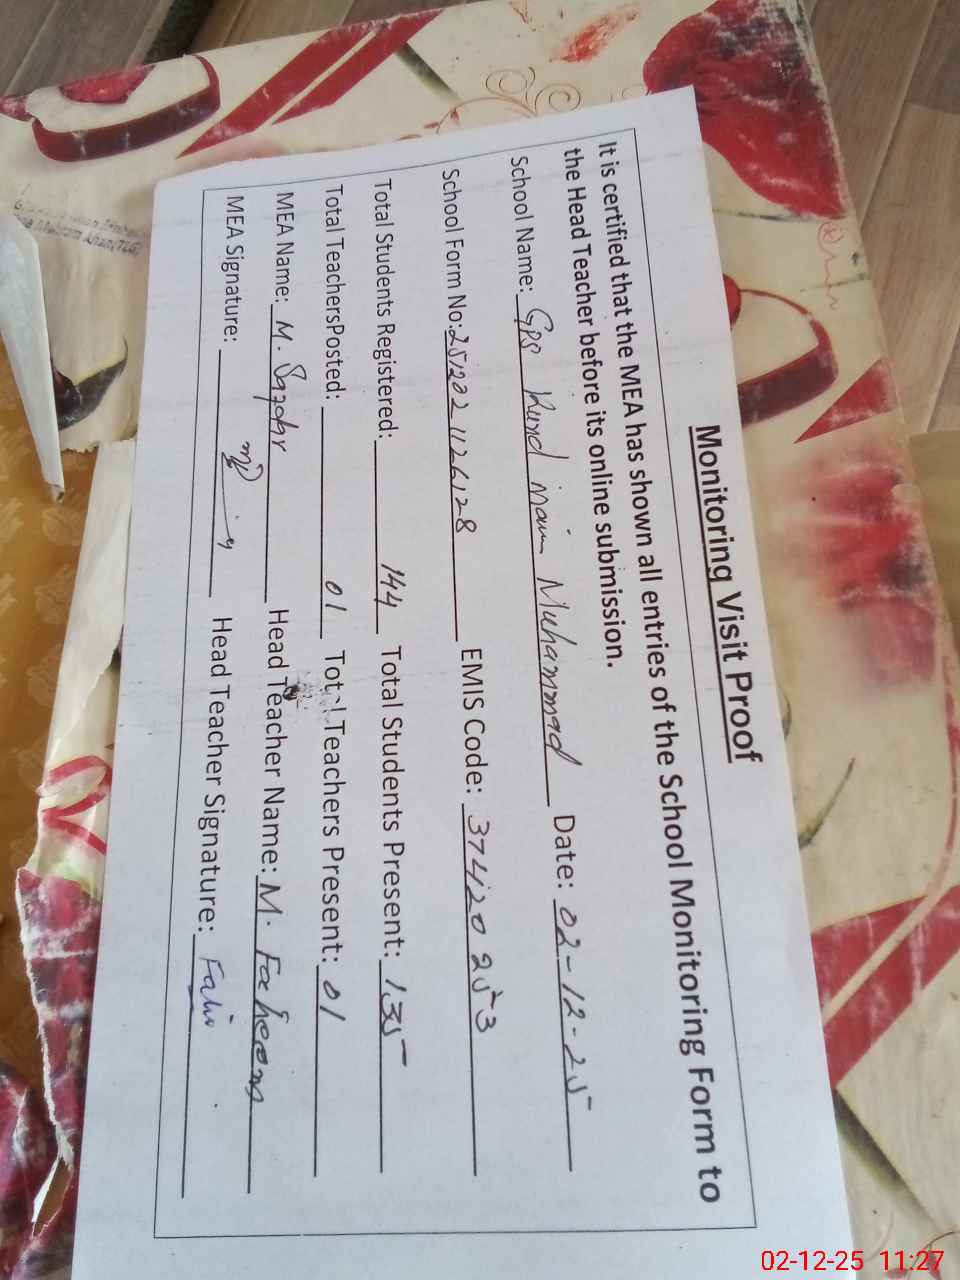 Monitoring Visit Proof
It is certified that the MEA has shown all entries of the School Monitoring Form to
the Head Teacher before its online submission.
School Name: Gps Kund main Muhammad Date: 02-12-25
School Form No: 2512021126128 EMIS Code: 37420253
Total Students Registered: 144 Total Students Present: 135
Total TeachersPosted: 01 Total Teachers Present: 01
MEA Name: M. Head Teacher Name: M. Faheem
MEA Signature: Head Teacher Signature:
02-12-25 11:27